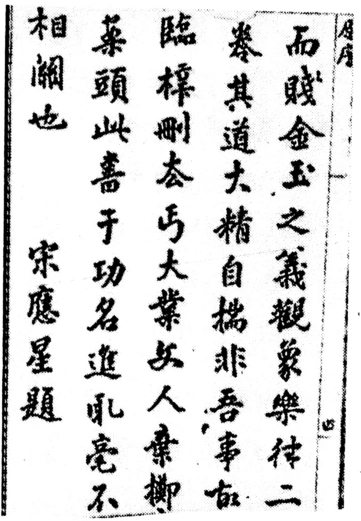 而賤金玉之義觀象樂律二
卷其道大精自揣非吾事故
臨梓刪去丐大業文人棄擲
案頭此書于功名進取毫不
相關也 宋應星題